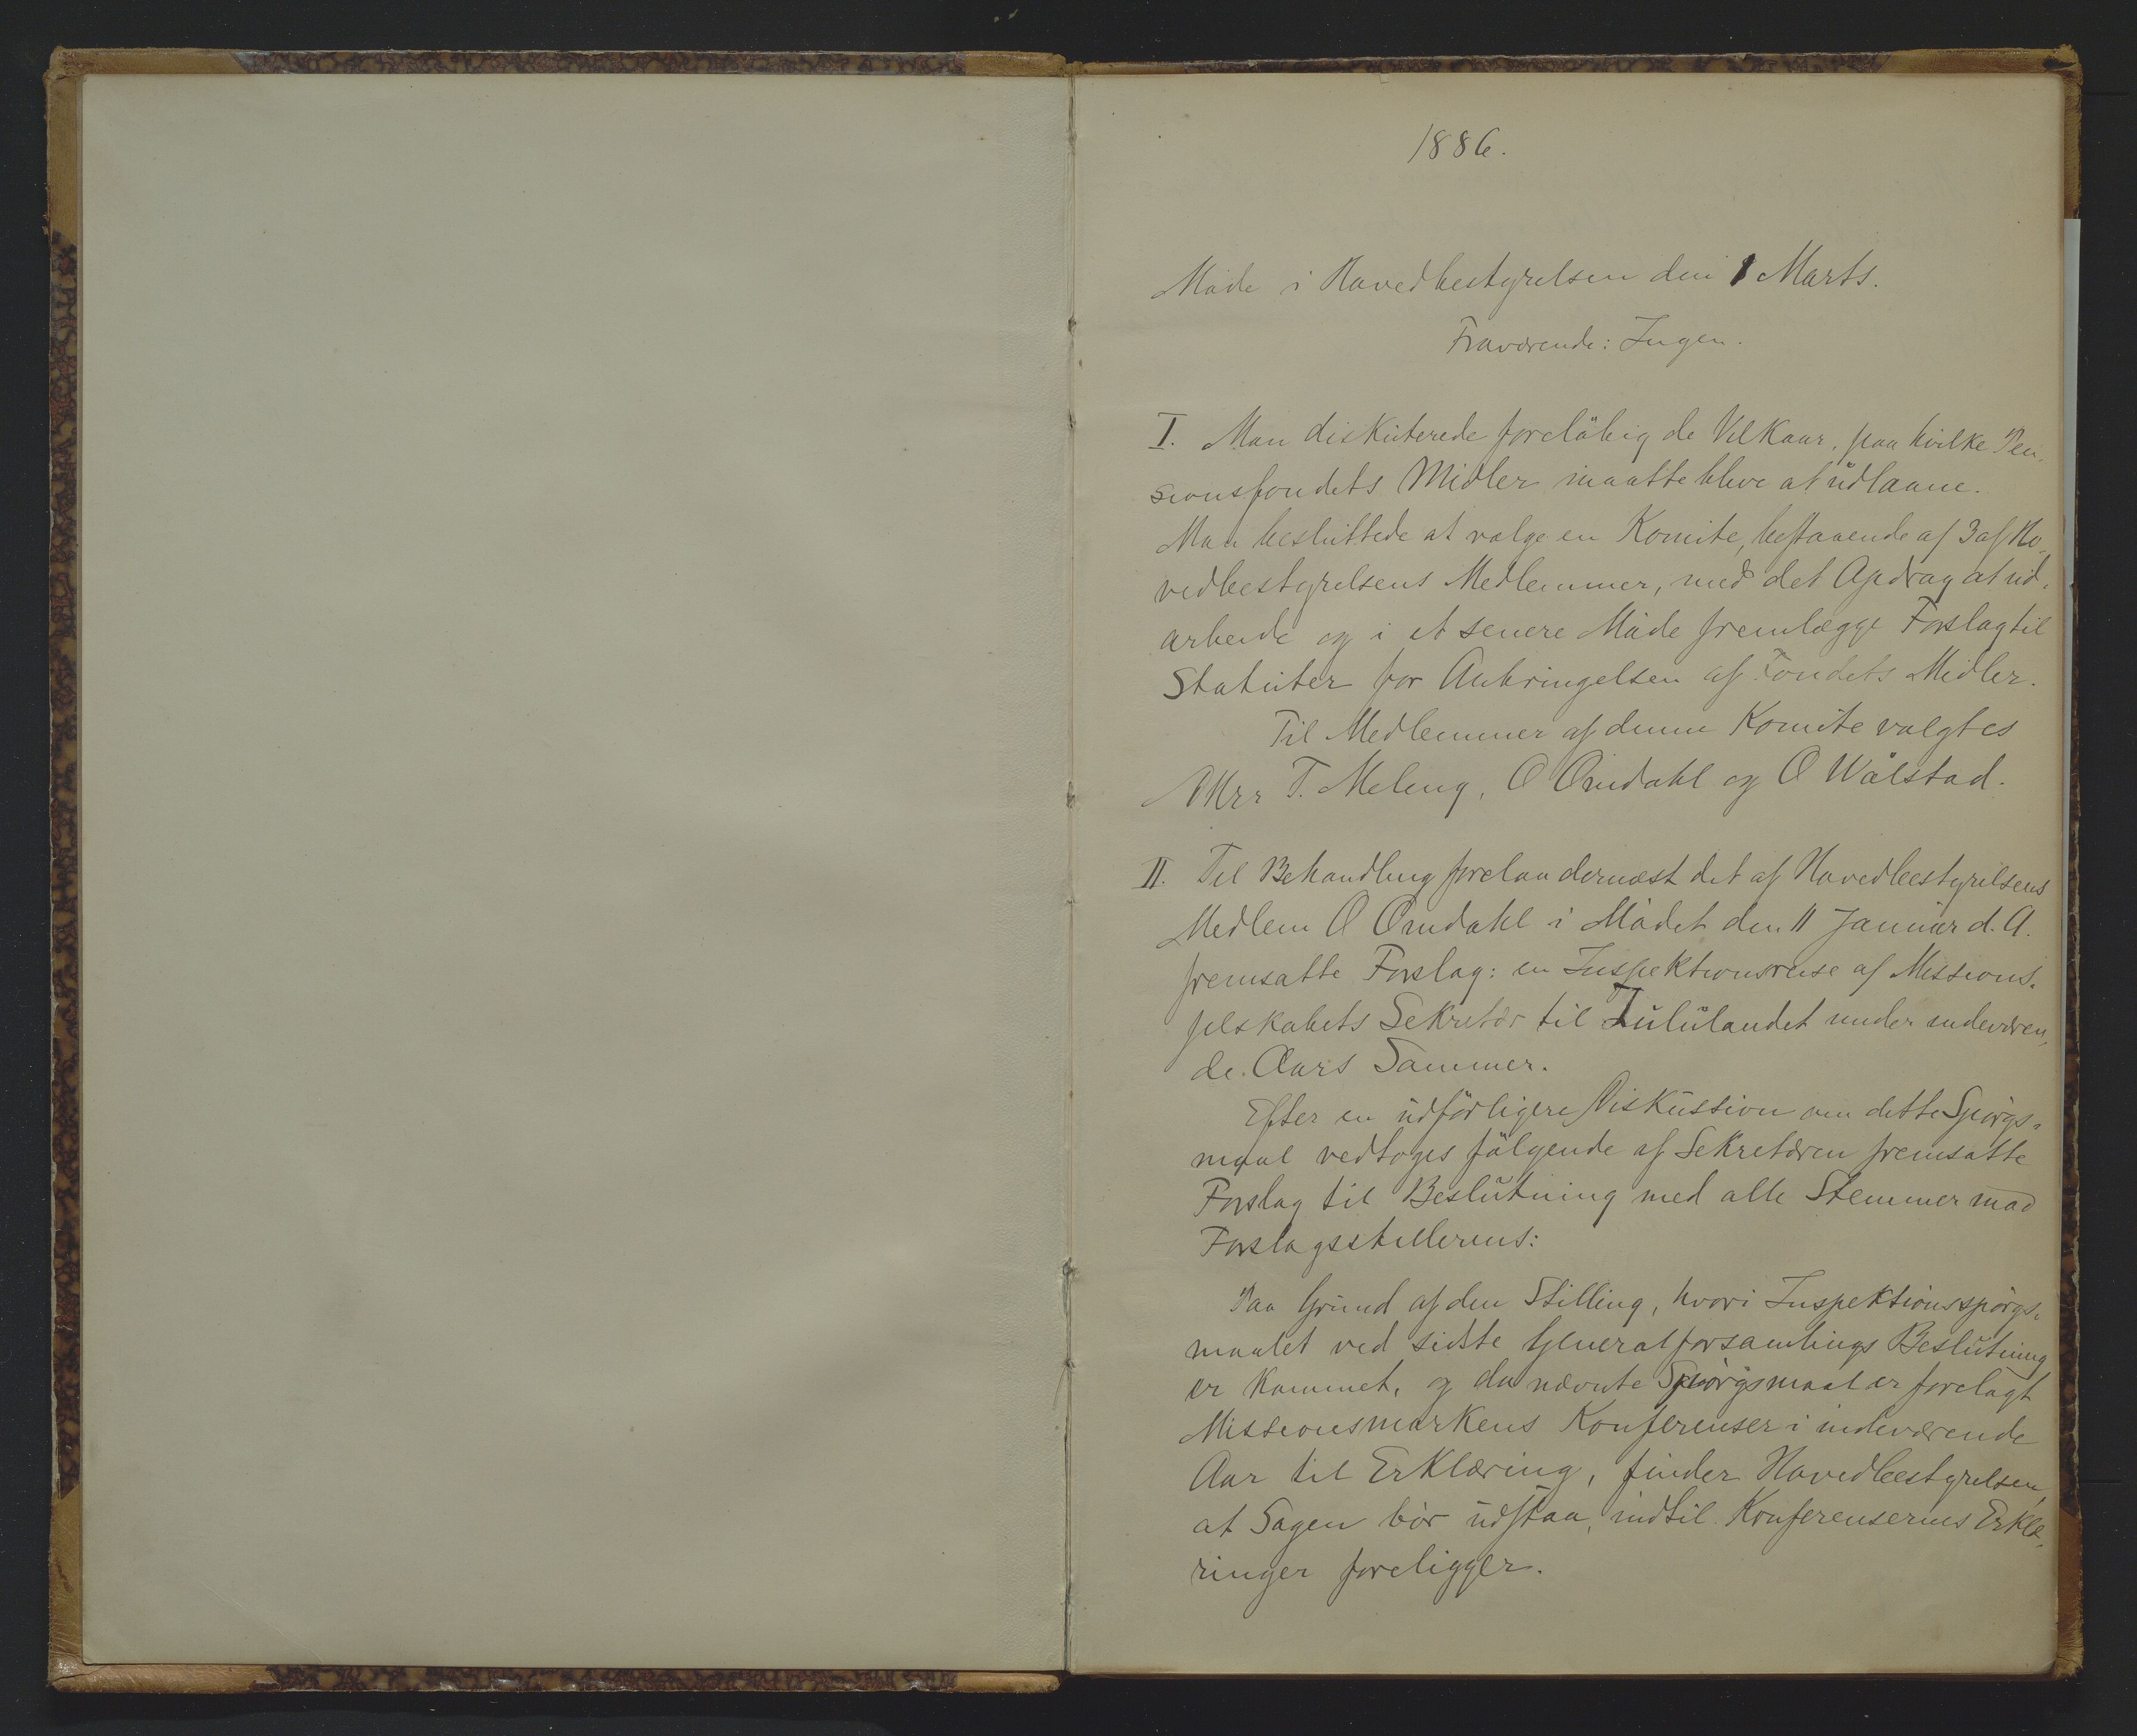 1886.
Möde i Hovedbestyrelsen den 1 Marts.
Fraværende: Ingen.
I. Man diskuterede forelöbig de Vilkaar, paa hvilke Pen-
sionsfondets Midler maatte blive at udlaane.
Man besluttede at vælge en Komite, bestaaende af 3 af Ho-
vedbestyrelsens Medlemmer, med det Opdrag at ud-
arbeide og i et senere Möde fremlægge Forslag til
Statuter for Anbringelsen af Fondets Midler.
Til Medlemmer af denne Komite valgtes
T. Meling, O Omdahl og O Wålstad.
II. Til Behandling forelaa dernæst det af Hovedbestyrelsens
Medlem O Omdahl i Mödet den 11 Januar d. A.
fremsatte Forslag: en Inspektionsreise af Missions-
selskabets Sekretær til Zululandet under indeværen-
de Aars Sommer.
Efter en udförligere Diskussion om dette Spörgs-
maal vedtoges fölgende af Sekretæren fremsatte
Forslag til Beslutning med alle Stemmer mod
Forslagsstillerens:
Paa Grund af den Stilling, hvori Inspektionsspörgs-
maalet ved sidste Generalforsamlings Beslutning
er kommet, og da nævnte Spörgsmaal er forelagt
Missionsmarkens Konferenser i indeværende
Aar til Erklæring, finder Hovedbestyrelsen,
at Sagen bör udstaa, indtil Konferensernes Erklæ-
ringer foreligger.